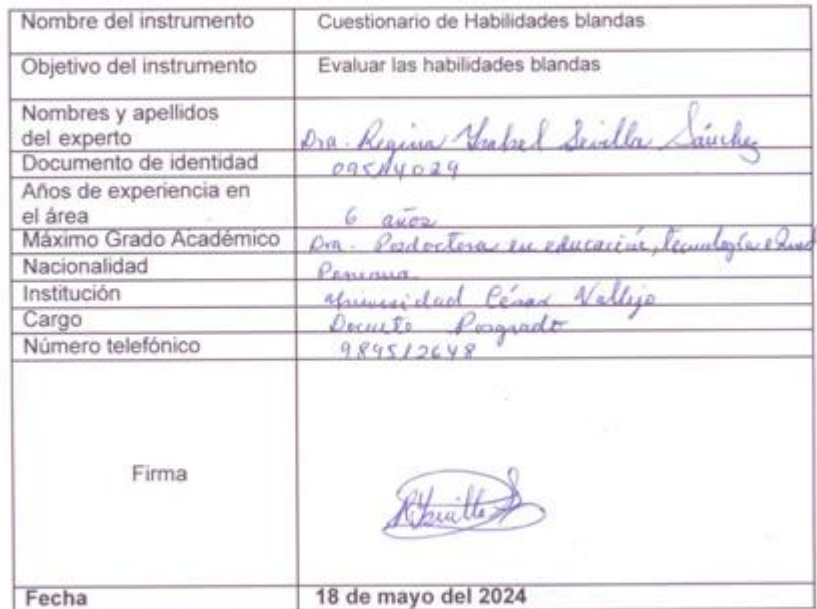 Nombre del instrumento Cuestionario de Habilidades blandas
Objetivo del instrumento Evaluar las habilidades blandas
Nombres y apellidos
del experto Dra. Regina Ysabel Sevilla Sánchez
Documento de identidad
Años de experiencia en
el área 6 años
Máximo Grado Académico Dra. Posdoctora en educación, tecnología e
Nacionalidad Peruana
Institución Universidad César Vallejo
Cargo Docente Posgrado
Número telefónico 989512648
Firma
Fecha 18 de mayo del 2024